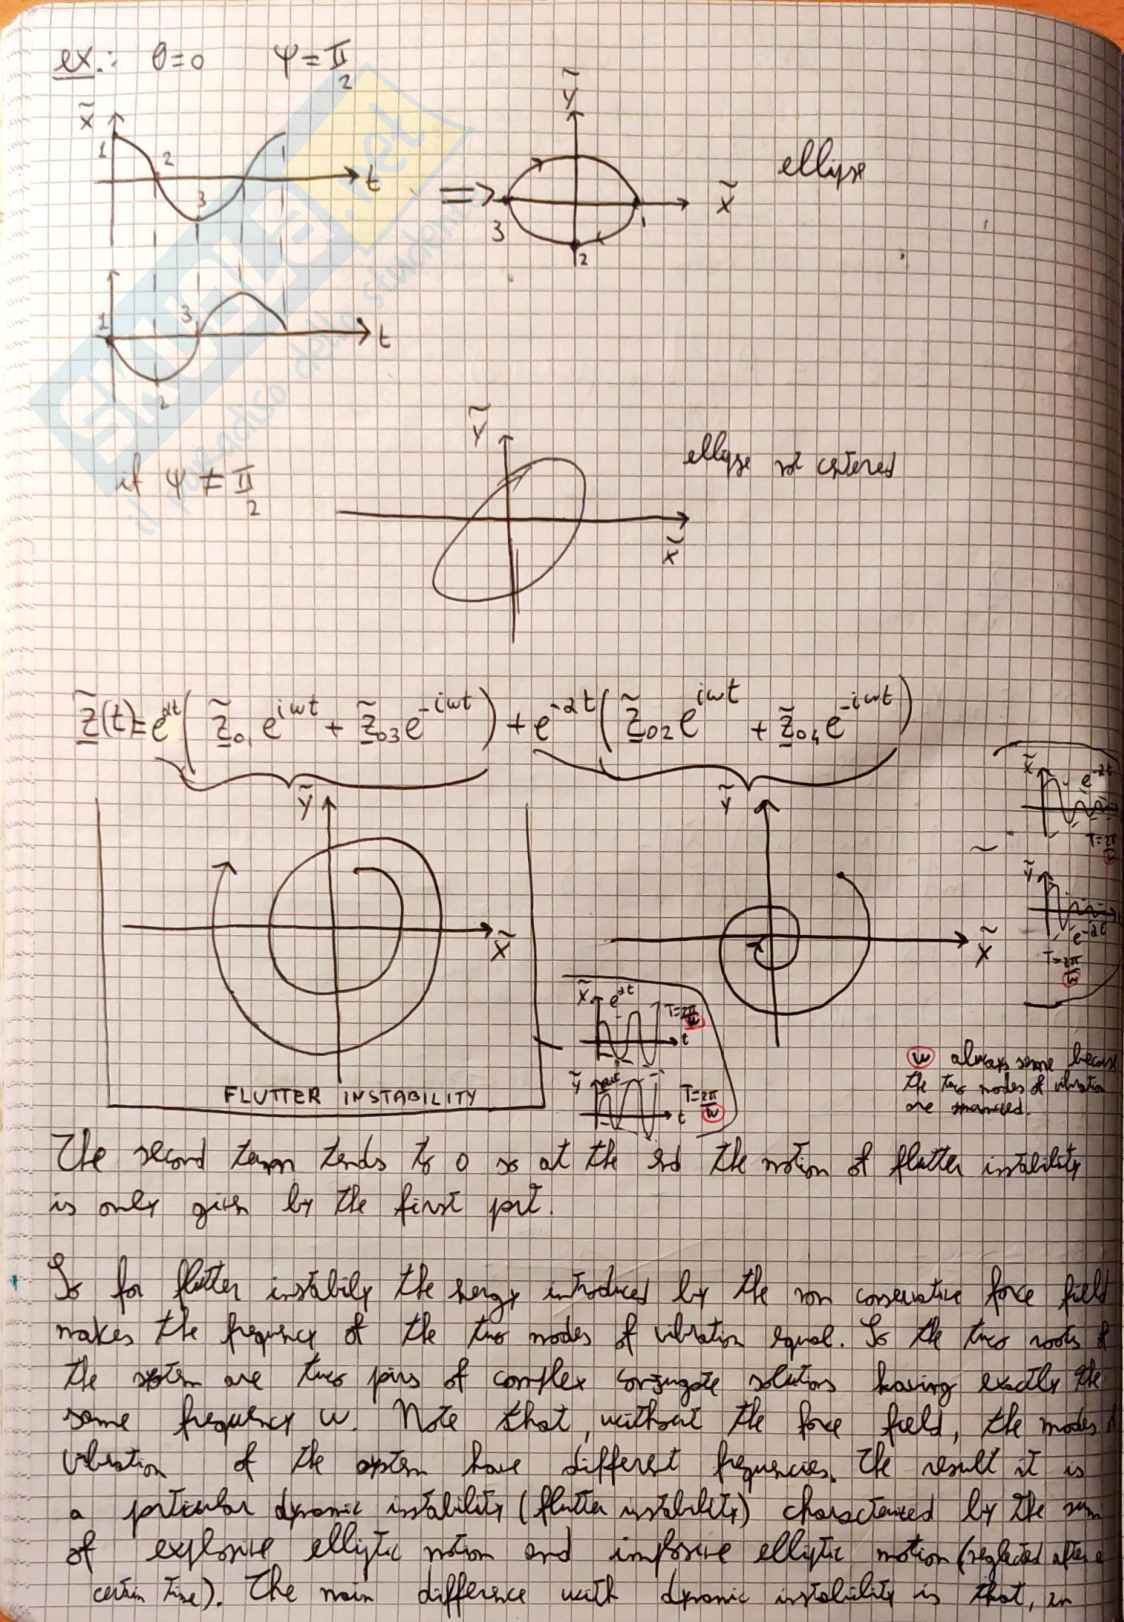 ex.: θ=0 ψ=π/2
x̃
1 2 3 1
t
ỹ
=>
x̃
3 1 2
ellipse
1 3 2
t
if ψ≠π/2
ỹ
x̃
ellipse not centered
z̃(t)=e^{αt}(z̃₀₁e^{iωt}+z̃₀₃e^{-iωt})+e^{-αt}(z̃₀₂e^{iωt}+z̃₀₄e^{-iωt})
x̃ e^{-αt}
T=2π/ω
ỹ
e^{-αt}
T=2π/ω
ỹ
x̃
ỹ
x̃
x̃ e^{αt} T=2π/ω
t
ỹ e^{αt} T=2π/ω
t
FLUTTER INSTABILITY
ω always same because
the two modes of vibration
are
The second term tends to 0 so at the end the motion of flutter instability
is only given by the first part.
So for flutter instability the energy introduced by the non conservative force field
makes the frequency of the two modes of vibration equal. So the two roots of
the system are two pairs of complex conjugate solutions having exactly the
same frequency ω. Note that, without the force field, the modes of
vibration of the system have different frequencies. The result it is
a particular dynamic instability (flutter instability) characterized by the sum
of explosive elliptic motion and implosive elliptic motion (neglected after a
certain time). The main difference with dynamic instability is that, in
SKUOLA.net
il paradiso dello studente